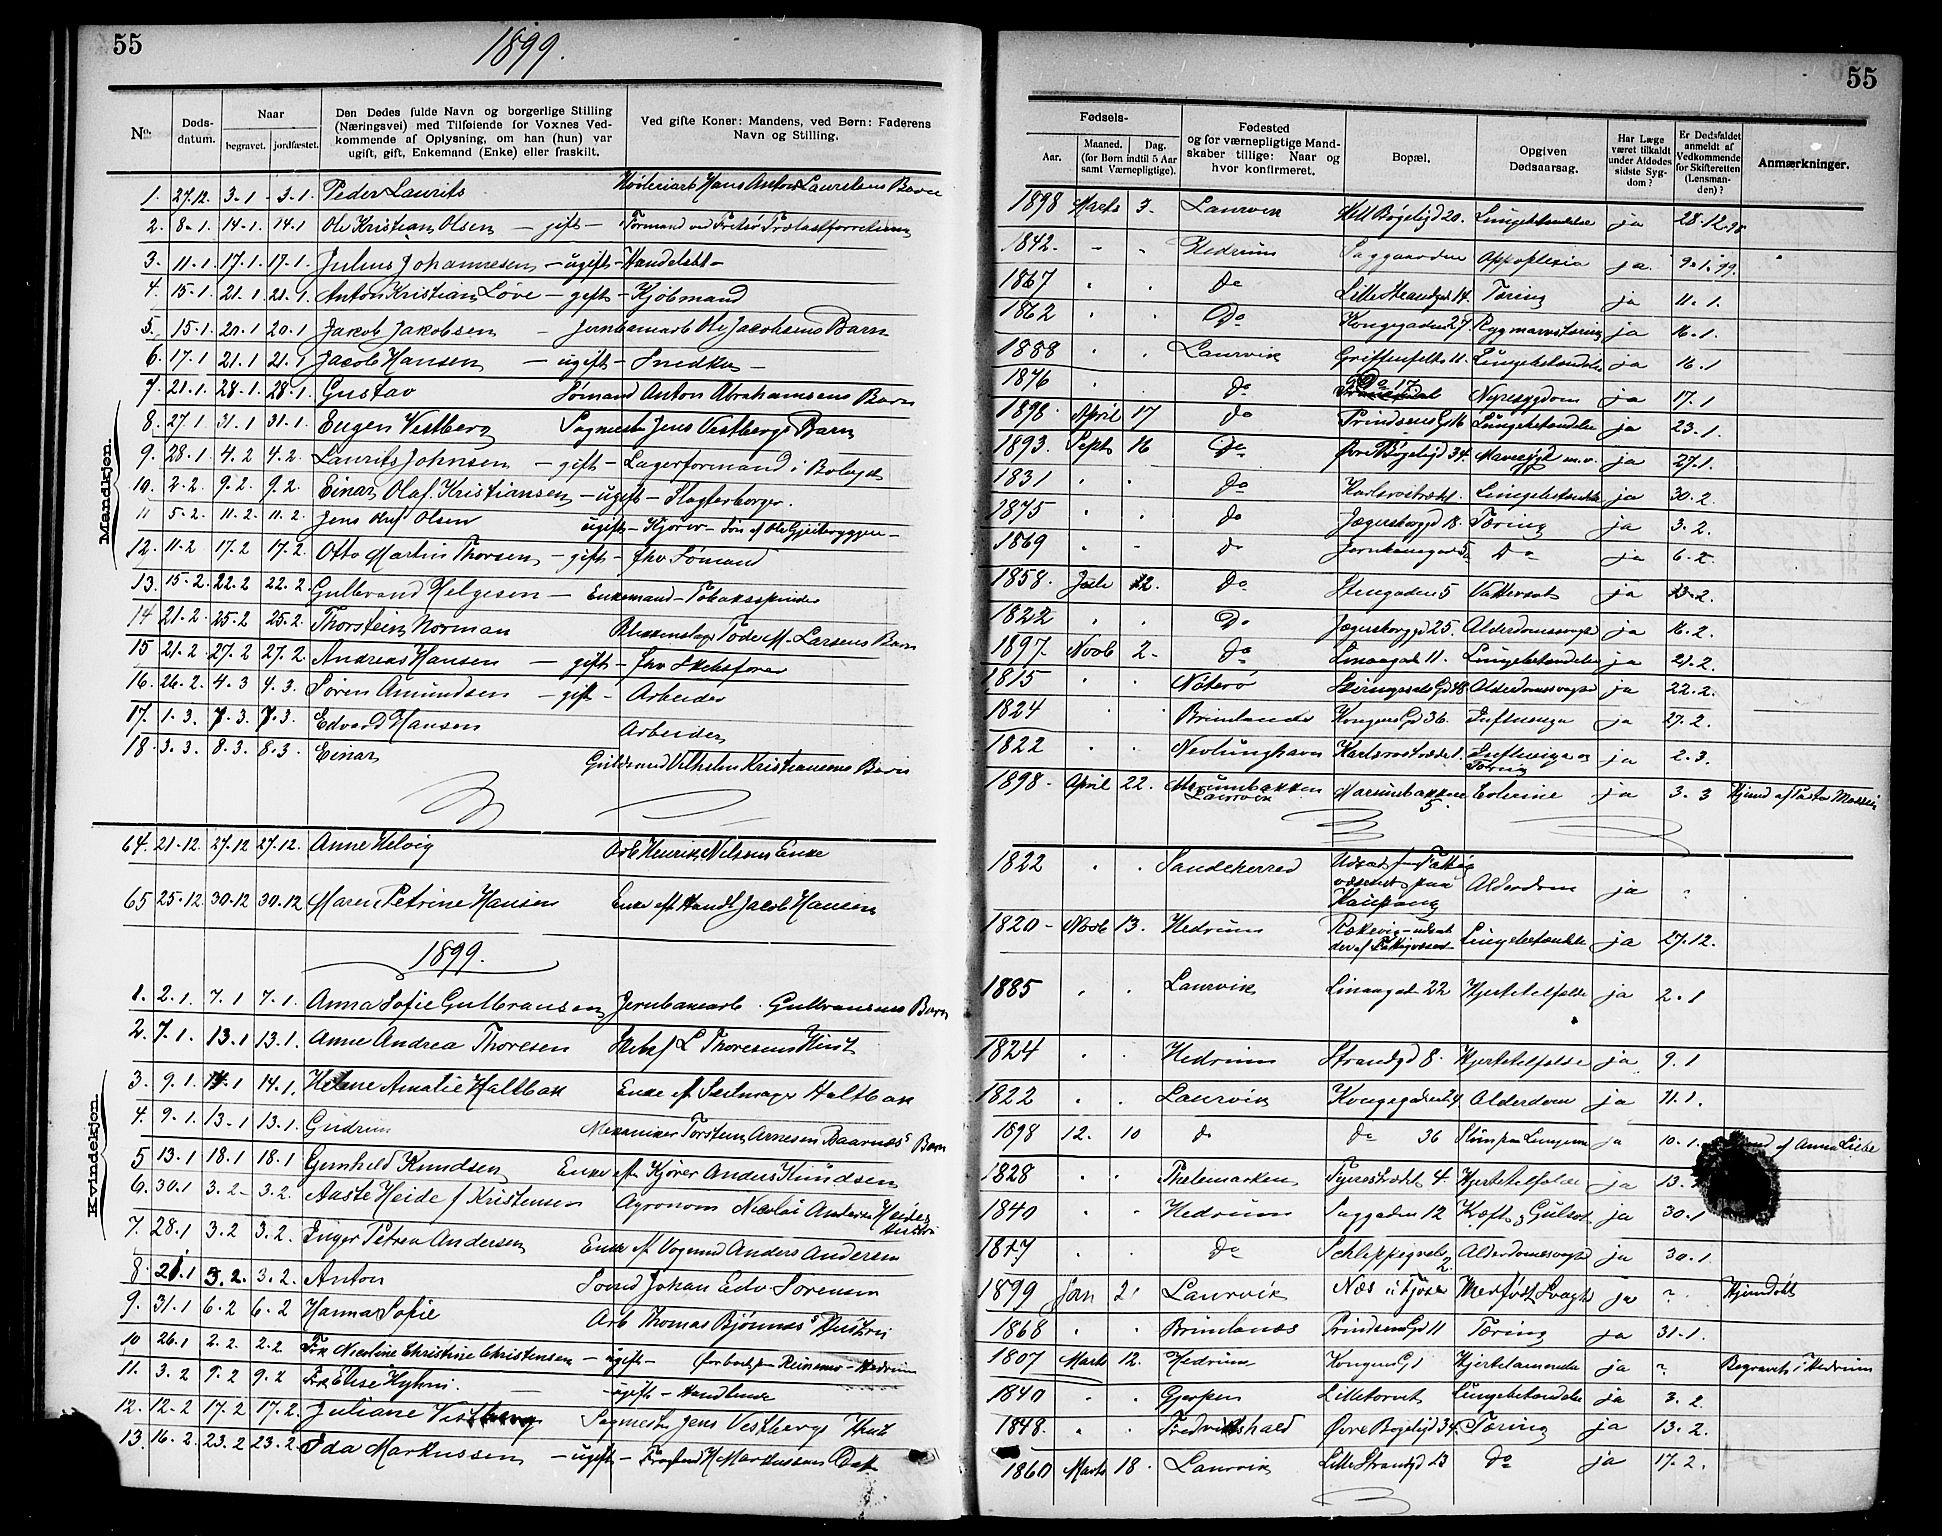 55
1899.
55
No.
Døds-
datum.
Naar
begravet.
jordfæstet.
Den Dødes fulde Navn og borgerlige Stilling
(Næringsvei) med Tilføiende for Voxnes Ved-
kommende af Oplysning, om han (hun) var
ugift, gift, Enkemand (Enke) eller fraskilt.
Ved gifte Koner: Mandens, ved Børn: Faderens
Navn og Stilling.
Fødsels-
Aar.
Maaned.
Dag.
(for Børn indtil 5 Aar
samt Værnepligtige).
Fødested
og for værnepligtige Mand-
skaber tillige: Naar og
hvor konfirmeret.
Bopæl.
Opgiven
Dødsaarsag.
Har Læge
været tilkaldt
under Afdødes
sidste Syg-
dom?
Er Dødsfaldet
anmeldt af
Vedkommende
for Skifteretten
(Lensman-
den)?
Anmærkninger.
Mandkjøn.
1. 27.12. 3.1 - 3.1. Peder Laurits Hans Anton Laurelens Barn
2. 8-1. 14-1. 14.1 Ole Kristian Olsen - gift - Formand ved Fritsö
3. 11-1. 17.1. 17.1. Julius Johannesen - ugift - Handelsbt -
4. 15-1. 21-1. 21.1. Anton Kristian Løve - gift - Kjøbmand
5. 15.1. 20.1 20.1 Jakob Jakobsen - Jernbanearb Ole Jacobsens Barn
6. 17.1 21.1 21.1 Jacob Hansen - ugift - Snedker -
7. 21.1. 28.1. 28.1. Gustav Sømand Anton Abrahamsens Barn
8. 27.1 31.1 31.1. Eugen Vestberg Sagmester Jens Vestbergs Barn
9. 28.1 4.2 4.2. Laurits Johnsen - gift - Lagerformand i
10. 2-2. 9.2. 9.2. Einar Olaf Kristiansen - ugift - Slagterborger.
11 5-2. 11.2. 11.2. Jens Olsen ugift - Kjører - Søn af Ole
12. 11-2 17.2 17.2. Otto Martin Thorsen - gift - fhv Sømand
13. 15.2. 22.2 22.2. Gulbrand Helgesen - Enkemand - Tobaksspinder
14 21-2. 25.2 25.2. Thorstein Norman Blikkenslager M. Larsens Barn
15 21.2. 27.2 27.2. Andreas Hansen - gift - fhv Skibsfører
16. 26.2. 4.3 4.3. Søren Amundsen - gift - Arbeider
17. 1.3. 7.3. 7.3. Edvard Hansen Arbeider
18. 3.3. 8.3. 8.3. Einar Guldsmed Vilhelm Kristiansens Barn
64. 21-12. 27.12 27.12. Anne Helvig Arb Henrik Nilsens Enke
65 25.12 30.12 30.12 Maren Petrine Hansen Enke eft Handl Jacob Hansen
1899.
Kvindekjøn.
1. 2.1. 7.1 7.1. Anna Sofie Gulbransen Jernbanearb. Gulbransens Barn
2. 7.1. 13.1 13.1. Anne Andrea Thoresen Skibsf L Thoresens Hust
3. 9.1. 14.1 14.1. Helene Amalie Holtbak Enke ef Seilmager Holtbak
4. 9-1. 13-1 13.1. Gudrun Mekaniker Torstein Arnesen Baarnæs' Barn
5 13.1 18.1 18.1 Gunhild Knudsen Enke eft Kjører Anders Knudsen
6. 30.1 3.2- 3.2. Aaste Heide f Kristensen Agronom Nicolai Andersen Heides
Hustru
7. 28.1 3.2 3.2. Inger Petrea Andersen Enke ef Vognmd Anders Andersen
8. 21.1 3.2. 3.2. Anton Johan Edv Sørensen
9. 31.1 6.2 6.2 Hanna Sofie Arb Thomas Bjønnes' Hustru
10 26.1 2.2. 2.2 Frk Nicoline Christine Christensen - ugift - Hedrum
11. 3.2 9.2 9.2 Frk Elise - ugift - Handlende
12. 12-2 17.2 17.2. Juliane Vestberg Sagmester Jens Vestbergs Hust
13. 16.2. 23.2 23.2. Ida Markussen - ugift - H Markussens Dat
1898 Marts 3. Laurvik 20. Lungebetændelse ja 28.12.98
1842. Hedrum Saggaarden Appoplexia ja 9.1.99.
1867 Do Lille Strandgd 14. Tæring ja 11.1.
1862 Do Kongegaden 27. Rygmarvstæring ja 16.1.
1888 Laurvik Griffenfelts 11. Lungebetændelse ja 16.1
1876 do 17. Nyresygdom ja 17.1
1898. April 17 do Prindsens G 16 Lungebetændelse ja 23.1.
1893. Sept 16 Do Øvre Bøgeligd 34. Mavesygd m.v. ja 27.1.
1831 do Lungebetændelse ja 30.2.
1875 do Jægersborggd 18. Tæring ja 3.2.
1869 do Jernbanegaden 5. Do ja 6.2.
1858. Juli 12. do Stengaden 5 Vattersot ja 13.2.
1822 Do Jægersborggd 25. Alderdomssvaghd ja 16.2.
1897. Novb 2. do Linaagade 11. Lungebetændelse ja 21.2.
1815 Nøterø 48. Alderdomssvaghd ja 22.2.
1824 Brunlanæs Kongens Gd 36. Influenza ja 27.2.
1822 Nevlunghavn Karlsrostrædet 1. Influenza og
Tæring ja 2.3.
1898. April 22. Mørumbakken
Laurvik
5. Colerine ja 3.3
1822 Sandeherred Udsat f Fattig-
væsenet paa
Kaupang Alderdom ja
1820 - Novb 13. Hedrum Rækevig - udsat
der af Fattigvæsen- Lungebetændelse ja 27.12.
1885 Laurvik Linaagade 22 Hjertetilfælde ja 2.1
1824 Hedrum Strandgd 8. Hjertetilfælde ja 9.1
1822 Laurvik Kongegaden 24. Alderdom ja 11.1.
1898 12. 10 do do 36 Slim paa Lungerne ja 10.1. af Anna Lible
1828 Thelemarken Fyrestrædet 4. Hjertetilfælde ja 13.
1840 Hedrum Saggaden 12 Kræft og Gulsot ja 30.1
1817 do
2. Alderdomssvaghd ja 30.1.
1899 Jan 2. Laurvik Næs i Tjøse Medfødt Svaghd ja ? Hjemdøbt
1868 Brunlanæs Prindsensgd 11 Tæring ja 31.1.
1807 Marts 12. Hedrum Kongens G 1 Hjertelammelse ja ? Begravet i Hedrum
1840 Gjerpen Lilletorvet Lungebetændelse ja 3.2
1848. Fredrikshald Øvre Bøgeligd 34. Tæring ja 13.2.
1860 Marts 18. Laurvik Lille Strandgd 23 Do ja 17.2.